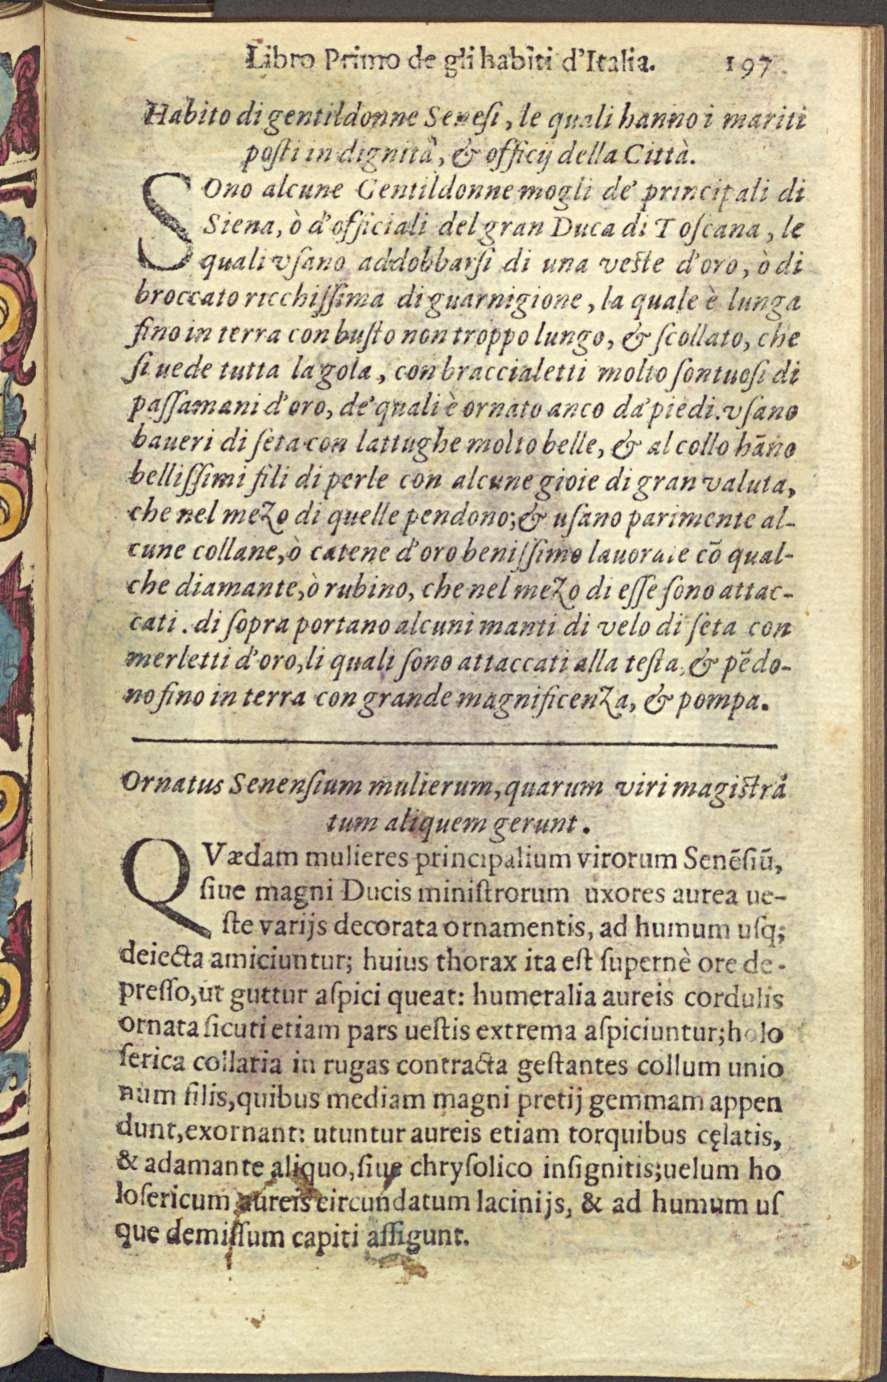 Libro Primo de gli habiti d'Italia. 197
Habito di gentildonne Senesi, le quali hanno i mariti
posti in dignità, & officij della Città.
SOno alcune Gentildonne mogli de' principali di
Siena, ò d'officiali del gran Duca di Toscana, le
quali vsano addobbarsi di una veste d'oro, ò di
broccato ricchissima di guarnigione, la quale è lunga
fino in terra con busto non troppo lungo, & scollato, che
si uede tutta la gola, con braccialetti molto sontuosi di
passamani d'oro, de' quali è ornato anco da' piedi. vsano
baueri di seta con lattughe molto belle, & al collo hãno
bellissimi fili di perle con alcune gioie di gran valuta,
che nel mezo di quelle pendono; & usano parimente al-
cune collane, ò catene d'oro benissimo lauorate cõ qual-
che diamante, ò rubino, che nel mezo di esse sono attac-
cati. di sopra portano alcuni manti di velo di seta con
merletti d'oro, li quali sono attaccati alla testa, & pẽdo-
no fino in terra con grande magnificenza, & pompa.
Ornatus Senensium mulierum, quarum viri magistra
tum aliquem gerunt.
QVædam mulieres principalium virorum Senẽsiũ,
siue magni Ducis ministrorum uxores aurea ue-
ste varijs decorata ornamentis, ad humum usq;
deiecta amiciuntur; huius thorax ita est supernè ore de-
presso, ut guttur aspici queat: humeralia aureis cordulis
ornata sicuti etiam pars uestis extrema aspiciuntur; holo
serica collaria in rugas contracta gestantes collum unio
num filis, quibus mediam magni pretij gemmam appen
dunt, exornant: utuntur aureis etiam torquibus cęlatis,
& adamante aliquo, siue chrysolico insignitis; uelum ho
losericum aureis circundatum lacinijs, & ad humum us
que demissum capiti affigunt.